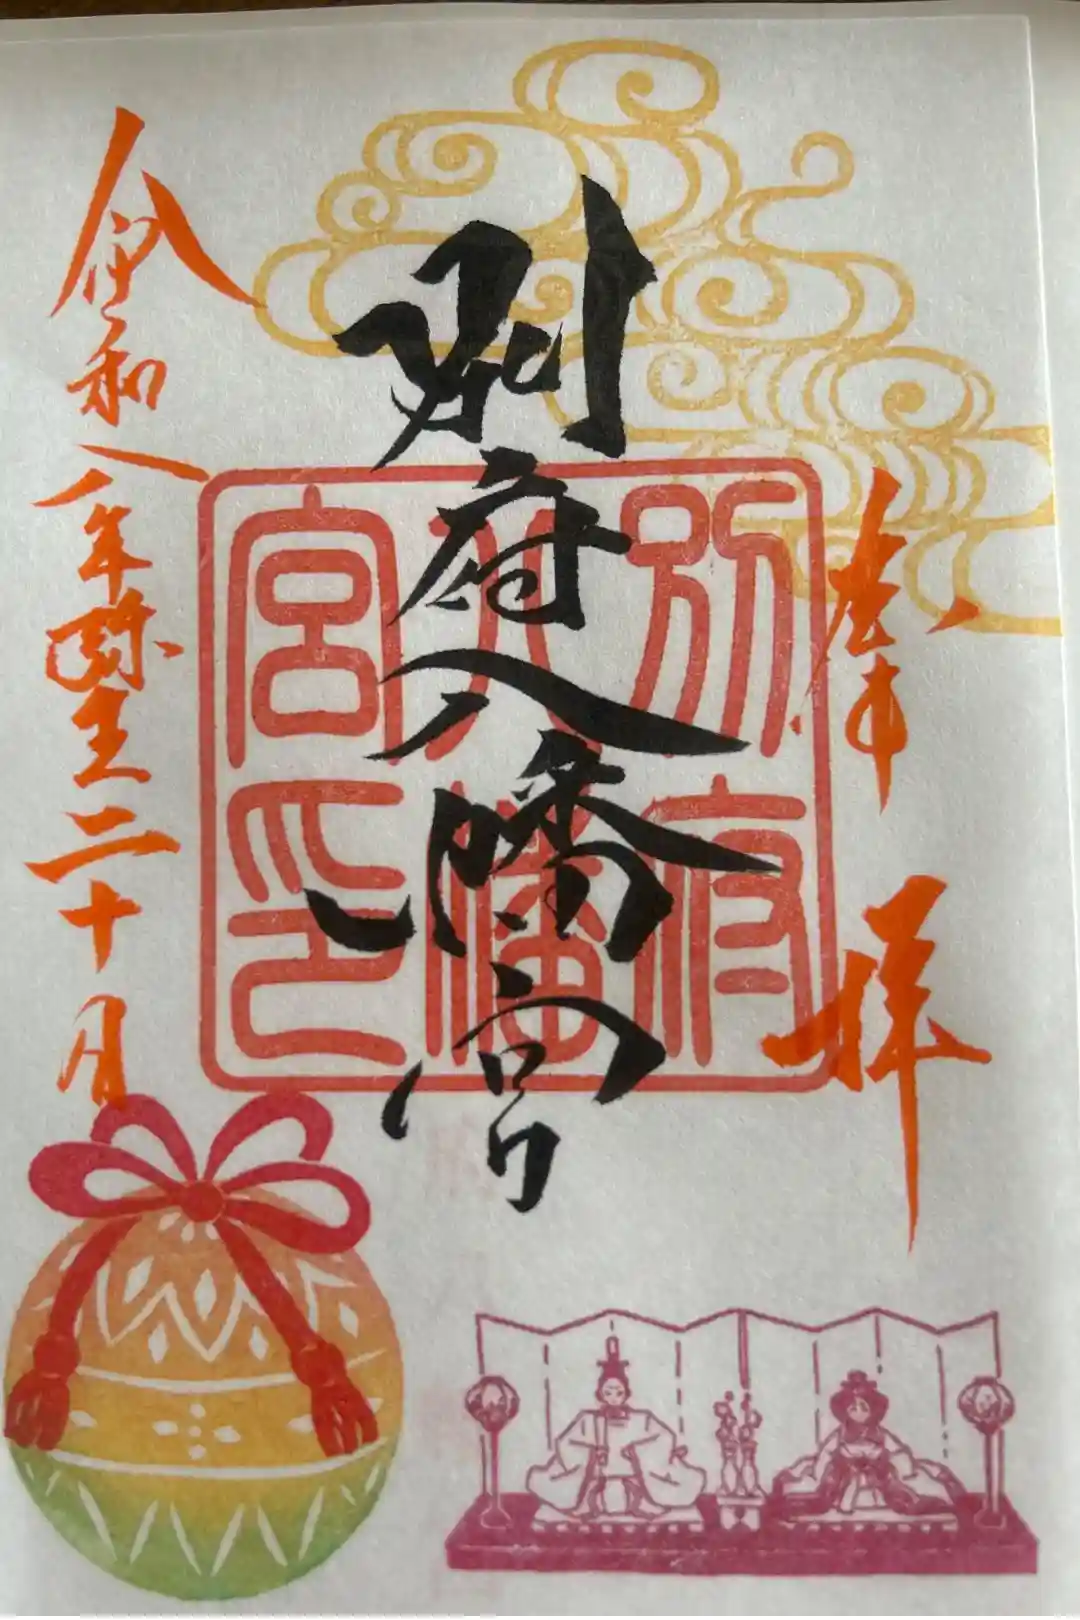 奉拝
別府八幡宮
別府
八幡
宮印
令和八年弥生二十日